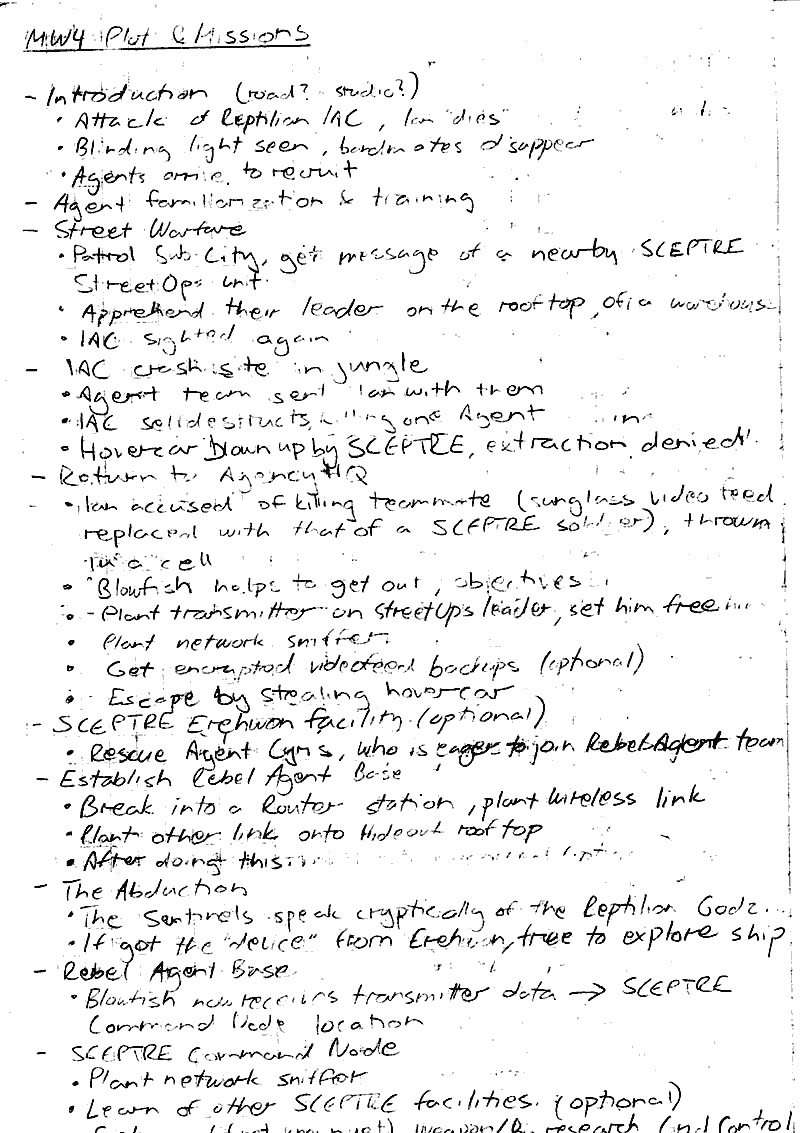 MW4 Plot & Missions
- Introduction (road? studio?)
• Attack of Reptilian IAC, Ian "dies"
• Blinding light seen, bandmates disappear
• Agents arrive to recruit
- Agent familiarization & training
- Street Warfare
• Patrol Sub City, get message of a nearby SCEPTRE
StreetOps unit.
• Apprehend their leader on the rooftop of a warehouse
• IAC sighted again
- IAC crash site in jungle
• Agent team sent, Ian with them
• IAC selfdestructs, killing one Agent
• Hovercar blown up by SCEPTRE, extraction denied
- Return to Agency HQ
• Ian accused of killing teammate (sunglass video feed
replaced with that of a SCEPTRE soldier), thrown
in a cell
• Blowfish helps to get out, objectives
• - Plant transmitter on StreetOps leader, set him free
• Plant network sniffer
• Get encrypted videofeed backups (optional)
• - Escape by stealing hovercar
- SCEPTRE Erehwon facility (optional)
• Rescue Agent Cyris, who is eager to join Rebel Agent team
- Establish Rebel Agent Base
• Break into a Router station, plant wireless link
• Plant other link onto Hideout rooftop
• After doing this:
- The Abduction
• The Sentinels speak cryptically of the Reptilian Godz...
• If got the "device" from Erehwon, free to explore ship
- Rebel Agent Base
• Blowfish now receives transmitter data → SCEPTRE
Command Node location
- SCEPTRE Command Node
• Plant network sniffer
• Learn of other SCEPTRE facilities. (optional)
research (Mind Control